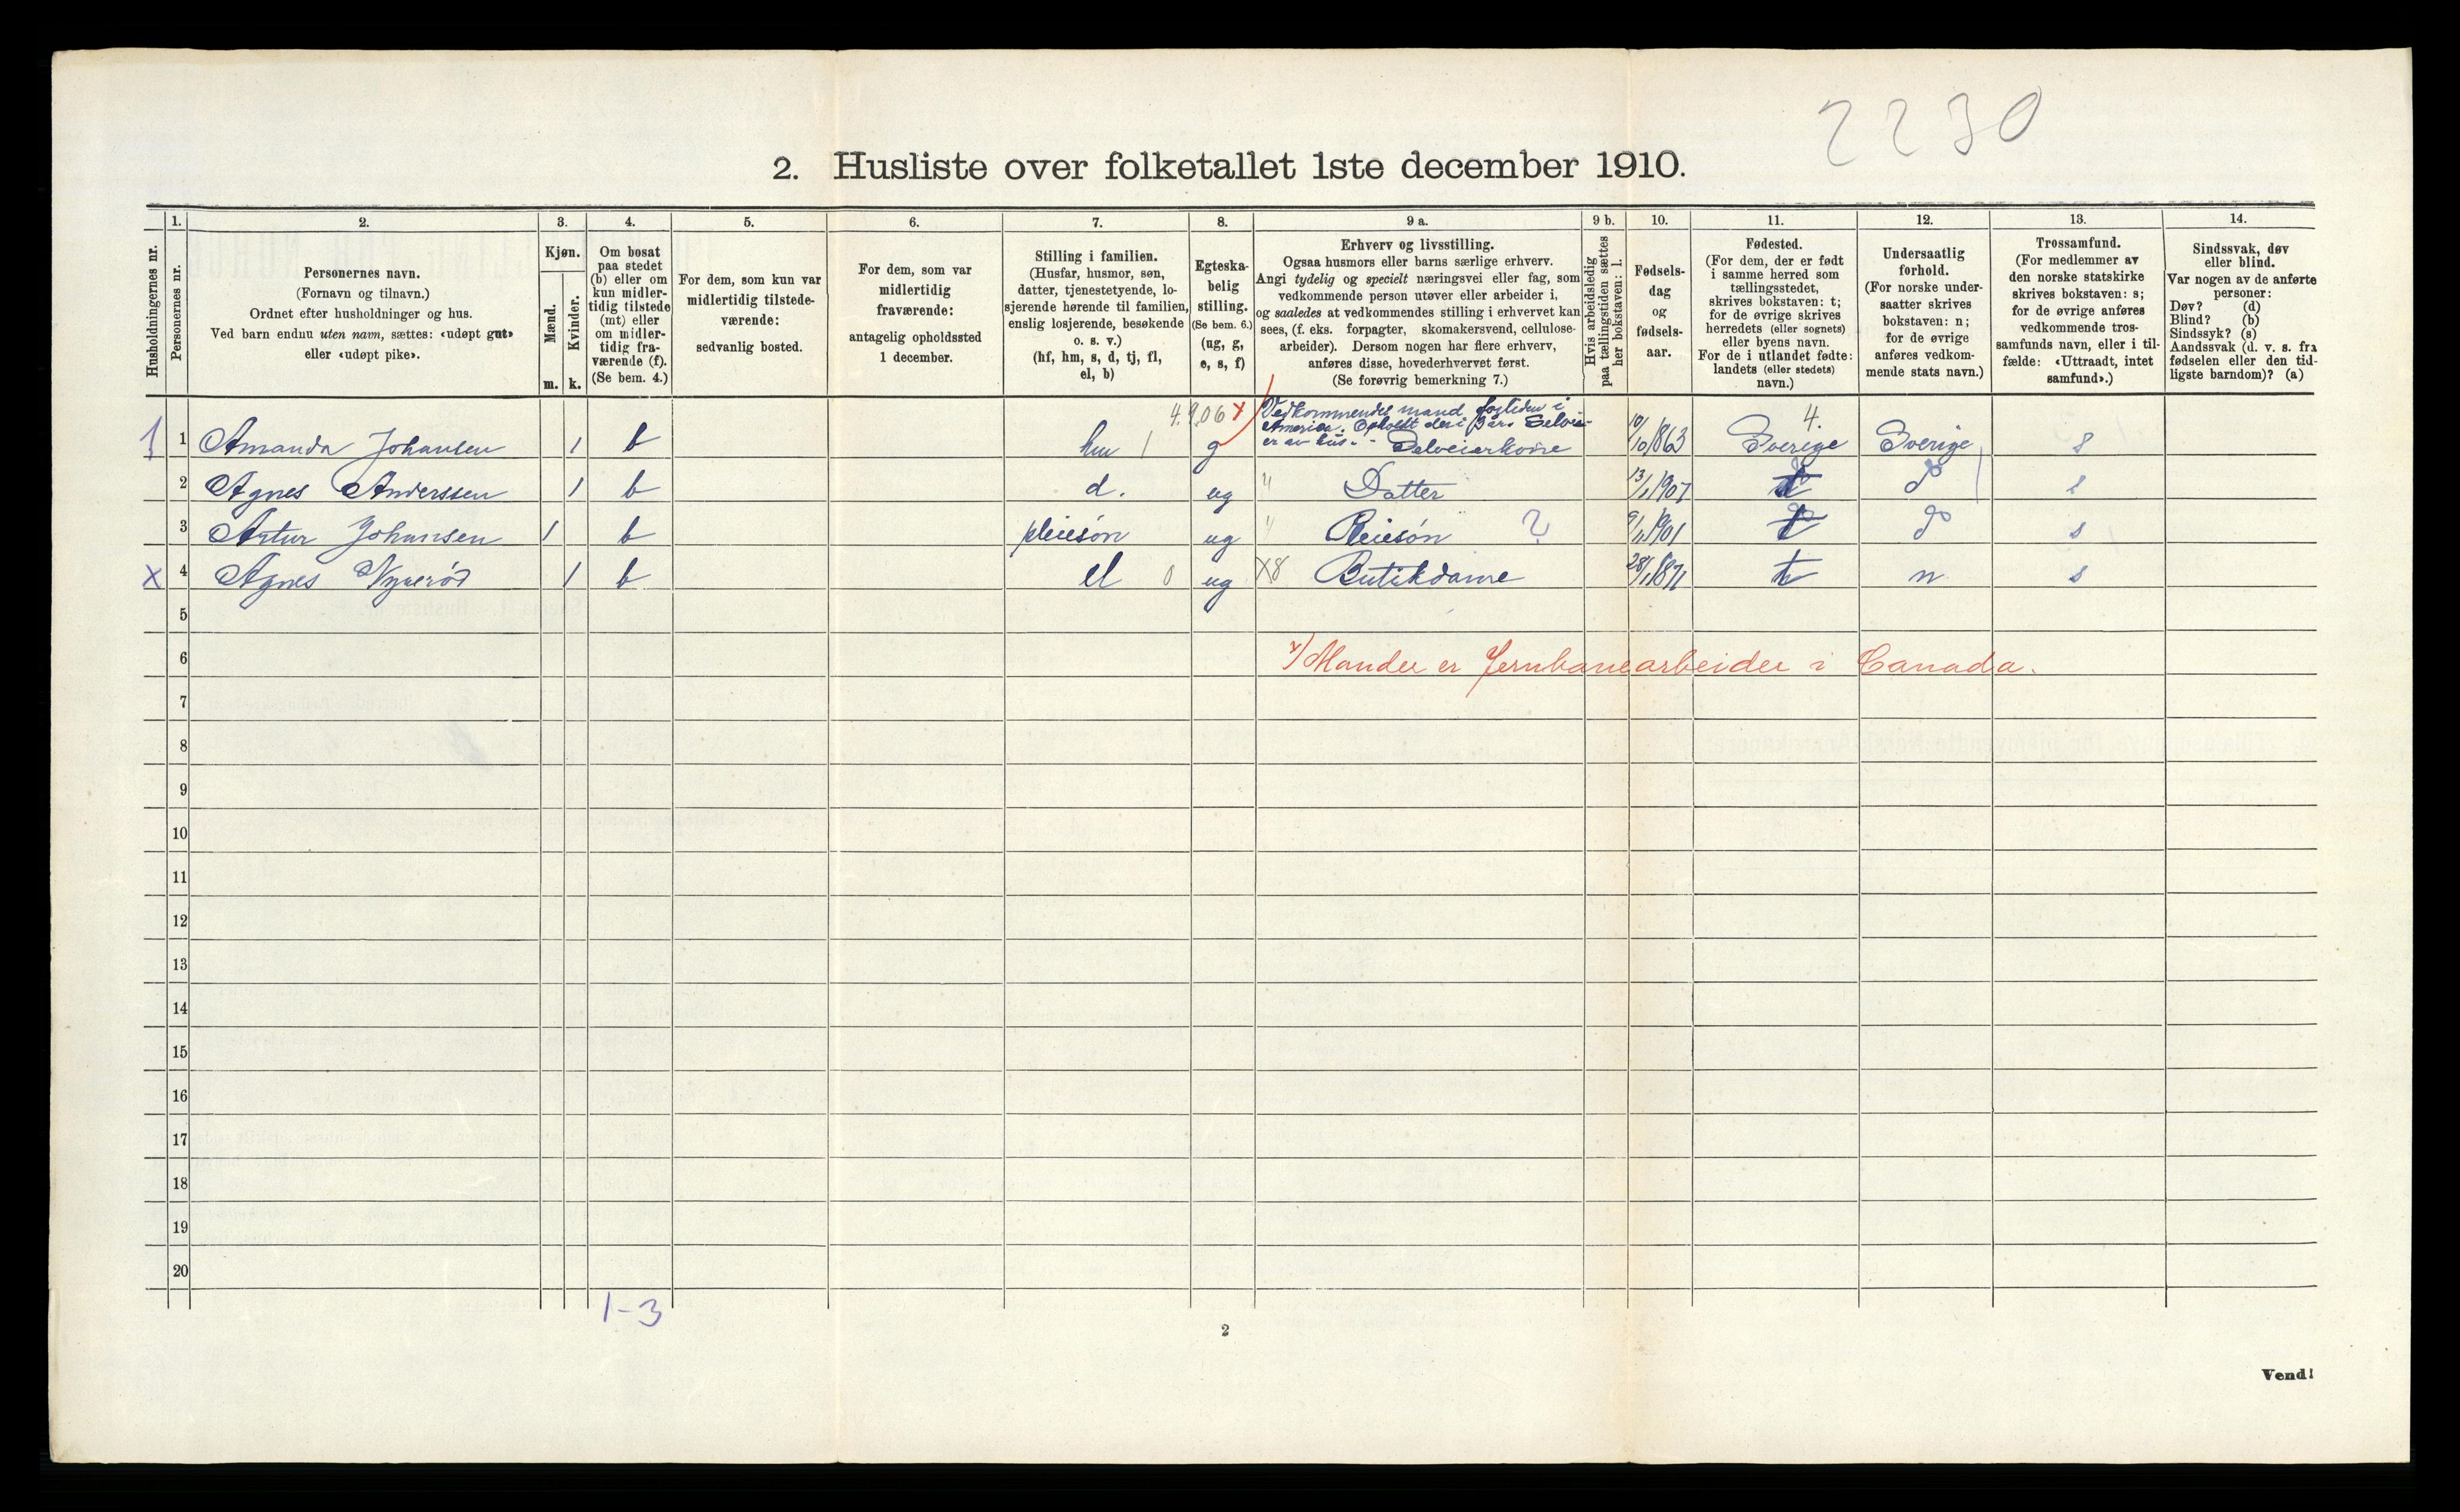 2230
2. Husliste over folketallet 1ste december 1910.
Husholdningernes nr.
1.
Personernes nr.
2.
Personernes navn.
(Fornavn og tilnavn.)
Ordnet efter husholdninger og hus.
Ved barn endnu uten navn, sættes: «udøpt gut»
eller «udøpt pike».
3.
Kjøn.
Mænd.
Kvinder.
m. k.
4.
Om bosat
paa stedet
(b) eller om
kun midler-
tidig tilstede
(mt) eller
om midler-
tidig fra-
værende (f).
(Se bem. 4.)
5.
For dem, som kun var
midlertidig tilstede-
værende:
sedvanlig bosted.
6.
For dem, som var
midlertidig
fraværende:
antagelig opholdssted
1 december.
7.
Stilling i familien.
(Husfar, husmor, søn,
datter, tjenestetyende, lo-
sjerende hørende til familien,
enslig losjerende, besøkende
o. s. v.)
(hf, hm, s, d, tj, fl,
el, b)
8.
Egteska-
belig
stilling.
(Se bem. 6.)
(ug, g,
e, s, f)
9 a.
Erhverv og livsstilling.
Ogsaa husmors eller barns særlige erhverv.
Angi tydelig og specielt næringsvei eller fag, som
vedkommende person utøver eller arbeider i,
og saaledes at vedkommendes stilling i erhvervet kan
sees, (f. eks. forpagter, skomakersvend, cellulose-
arbeider). Dersom nogen har flere erhverv,
anføres disse, hovederhvervet først.
(Se forøvrig bemerkning 7.)
9 b.
Hvis arbeidsledig
paa tællingstiden sættes
her bokstaven: l.
10.
Fødsels-
dag
og
fødsels-
aar.
11.
Fødested.
(For dem, der er født
i samme herred som
tællingsstedet,
skrives bokstaven: t;
for de øvrige skrives
herredets (eller sognets)
eller byens navn.
For de i utlandet fødte:
landets (eller stedets)
navn.)
12.
Undersaatlig
forhold.
(For norske under-
saatter skrives
bokstaven: n;
for de øvrige
anføres vedkom-
mende stats navn.)
13.
Trossamfund.
(For medlemmer av
den norske statskirke
skrives bokstaven: s;
for de øvrige anføres
vedkommende tros-
samfunds navn, eller i til-
fælde: «Uttraadt, intet
samfund».)
14.
Sindssvak, døv
eller blind.
Var nogen av de anførte
personer:
Døv? (d)
Blind? (b)
Sindssyk? (s)
Aandssvak (d. v. s. fra
fødselen eller den tid-
ligste barndom)? (a)
4.9.06 x Vedkommendes mand fortiden i 4.
America. Opholdt der i 3 år. Selvei-
er av hus.
1 1 Amanda Johansen 1 b hm 1 g Selveierkone 10/10 1863 Sverige Sverige s
2 Agnes Anderssen 1 b d. ug " Datter 13/1 1907 t s
3 Artur Johansen 1 b pleiesøn ug " Pleiesøn ? 9/11 1901 t s
x 4 Agnes Nyrerød 1 b el 0 ug x8 Butikdame 28/1 1871 t n s
5
6 x) Manden er Jernbanearbeider i Canada.
7
8
9
10
11
12
13
14
15
16
17
18
19
20
1-3
2
Vend!